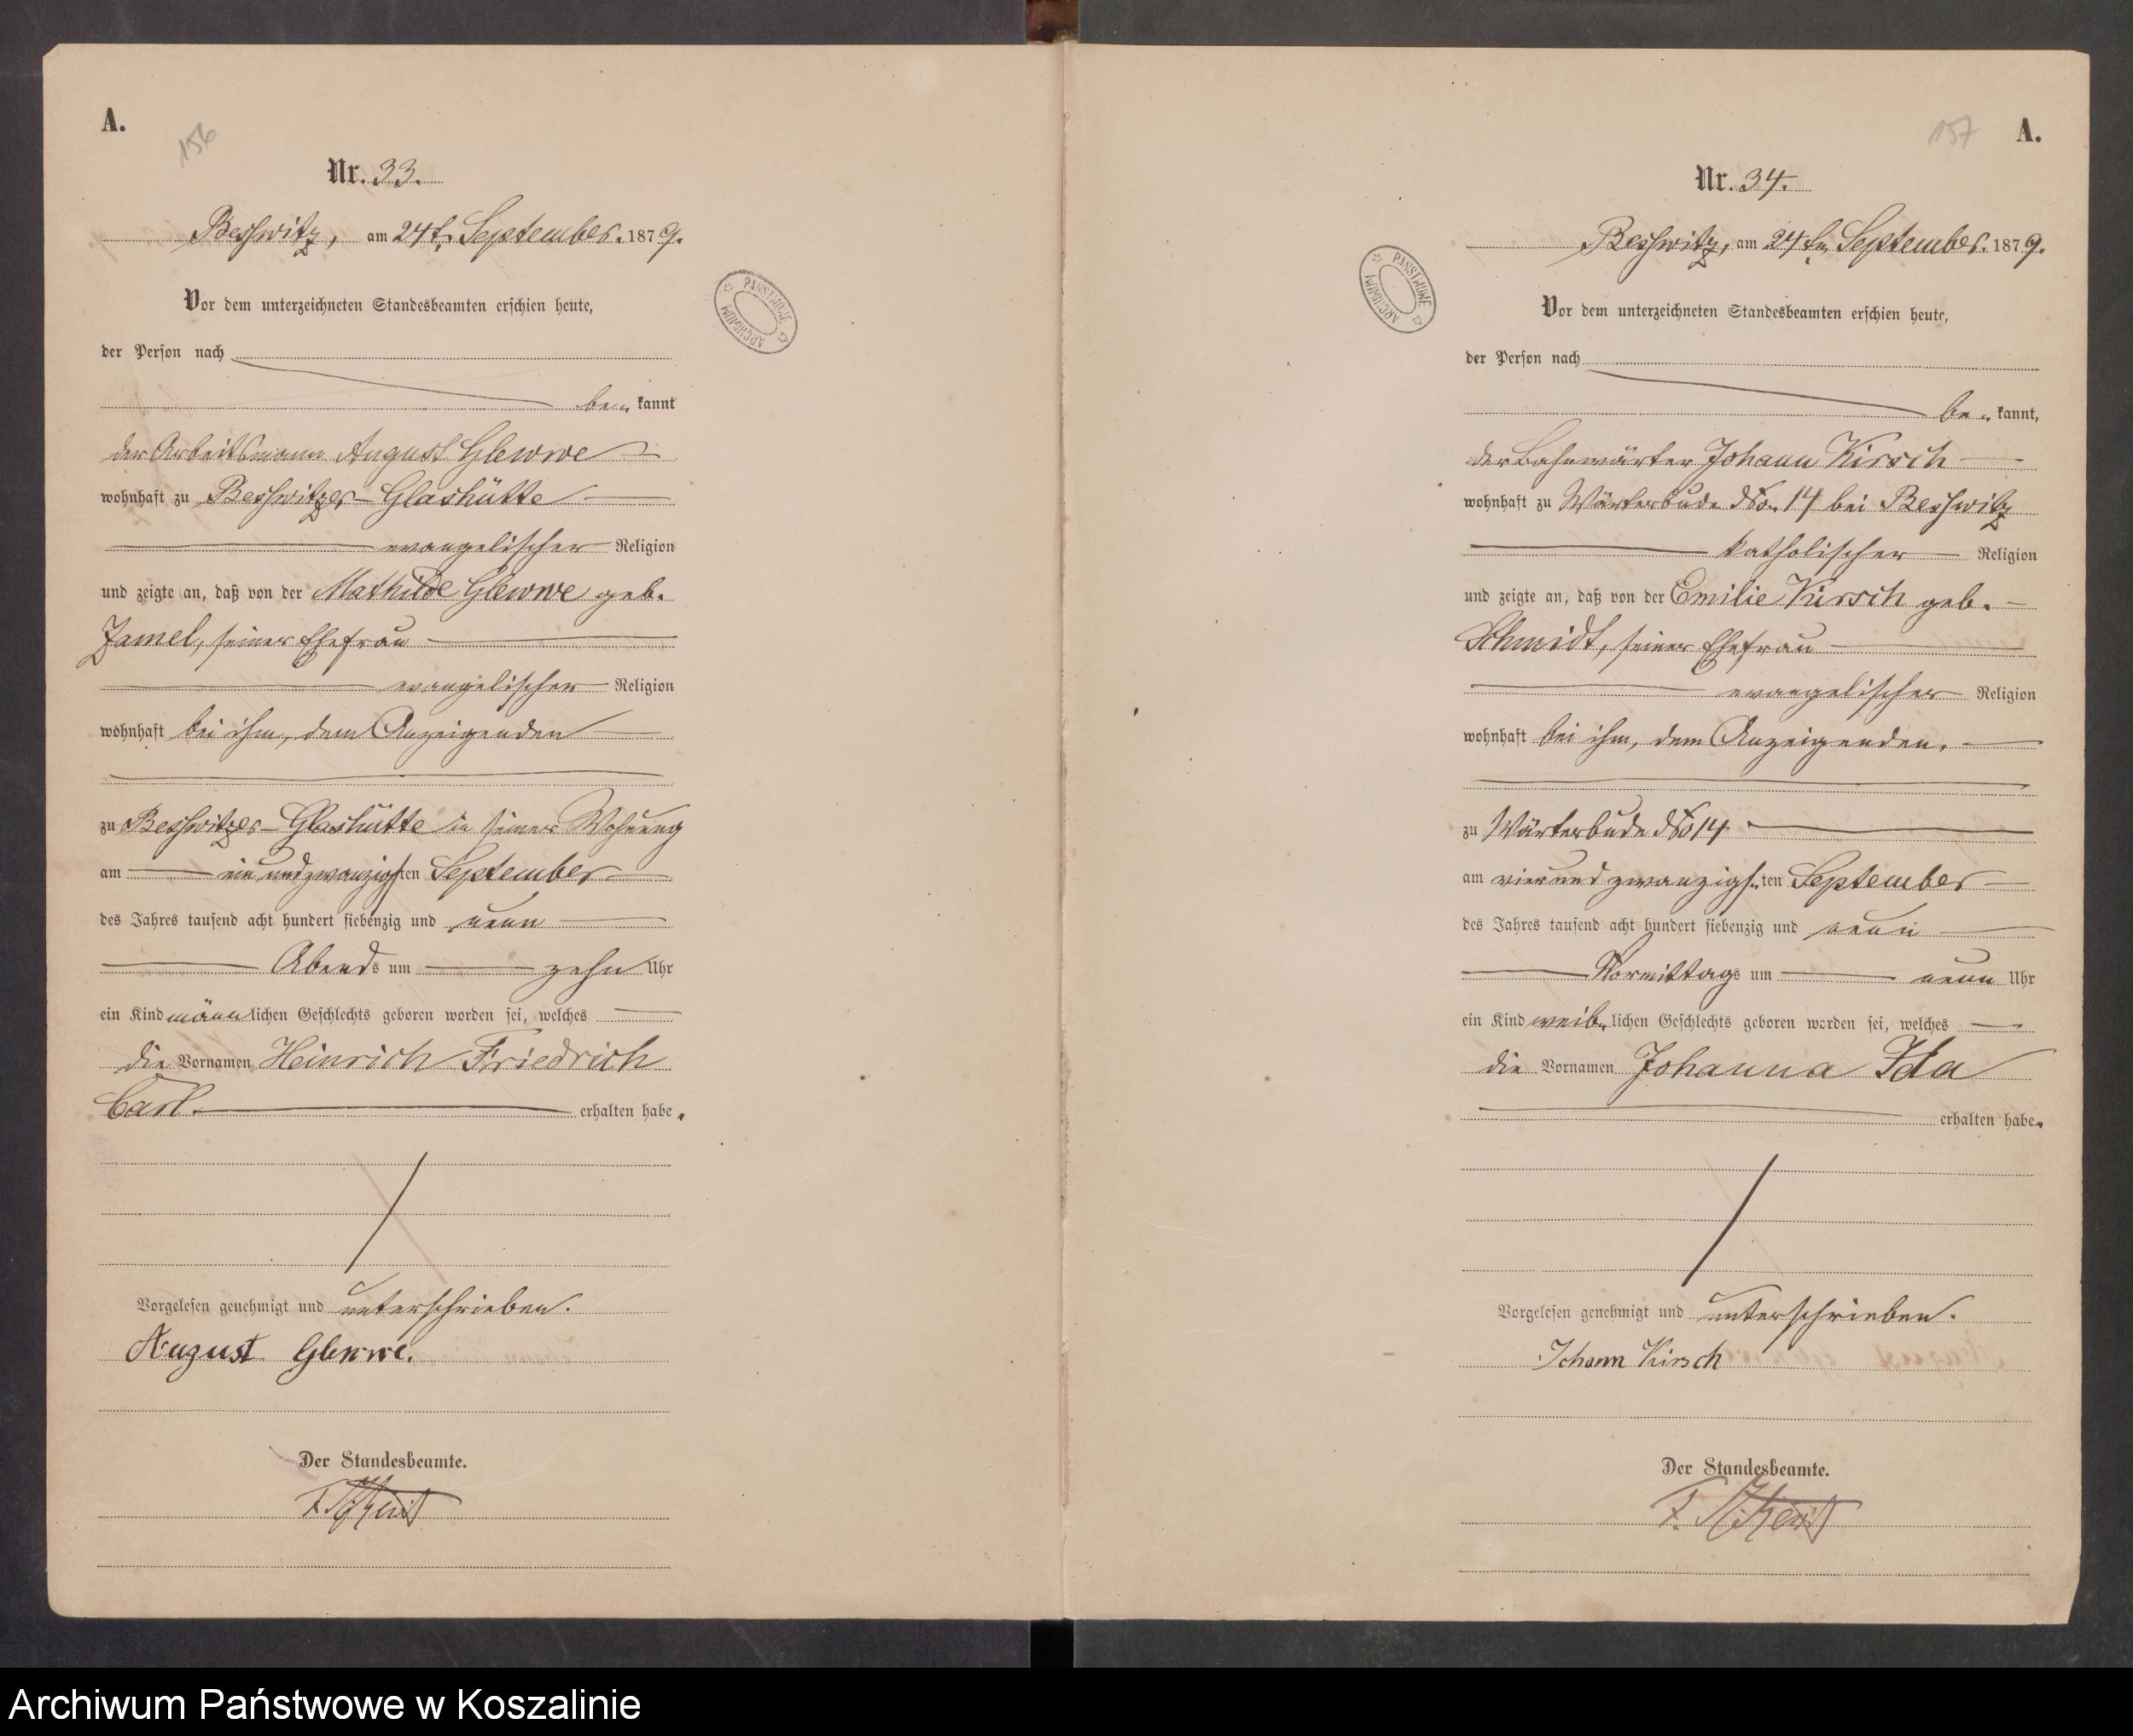 A.
156
Nr. 33.
Besswitz, am 24t. September. 1879.
Vor dem unterzeichneten Standesbeamten erschien heute,
der Person nach
be= kannt
der Arbeitsmann August Glewwe
wohnhaft zu Besswitzer-Glashütte
evangelischer Religion
und zeigte an, daß von der Mathilde Glewwe geb.
Zamel, seiner Ehefrau
evangelischer Religion
wohnhaft bei ihm, dem Anzeigenden
zu Besswitzer-Glashütte in seiner Wohnung
am ein und zwanzigsten September
des Jahres tausend acht hundert siebenzig und neun
Abends um zehn Uhr
ein Kind männlichen Geschlechts geboren worden sei, welches
die Vornamen Heinrich Friedrich
Carl. erhalten habe.
Vorgelesen genehmigt und unterschrieben.
August Glewwe.
Der Standesbeamte.
ARCHIWUM PAŃSTWOWE
157
A.
Nr. 34.
Besswitz, am 24ten September. 1879.
Vor dem unterzeichneten Standesbeamten erschien heute,
der Person nach
be= kannt,
der Bahnwärter Johann Kirsch
wohnhaft zu Wärterbude No. 14 bei Besswitz
katholischer Religion
und zeigte an, daß von der Emilie Kirsch geb.
Schmidt, seiner Ehefrau
evangelischer Religion
wohnhaft bei ihm, dem Anzeigenden.
zu Wärterbude No 14
am vier und zwanzigsten September
des Jahres tausend acht hundert siebenzig und neun
Vormittags um neun Uhr
ein Kind weiblichen Geschlechts geboren worden sei, welches
die Vornamen Johanna Ida
erhalten habe.
Vorgelesen genehmigt und unterschrieben.
Johann Kirsch
Der Standesbeamte.
ARCHIWUM PAŃSTWOWE
Archiwum Państwowe w Koszalinie